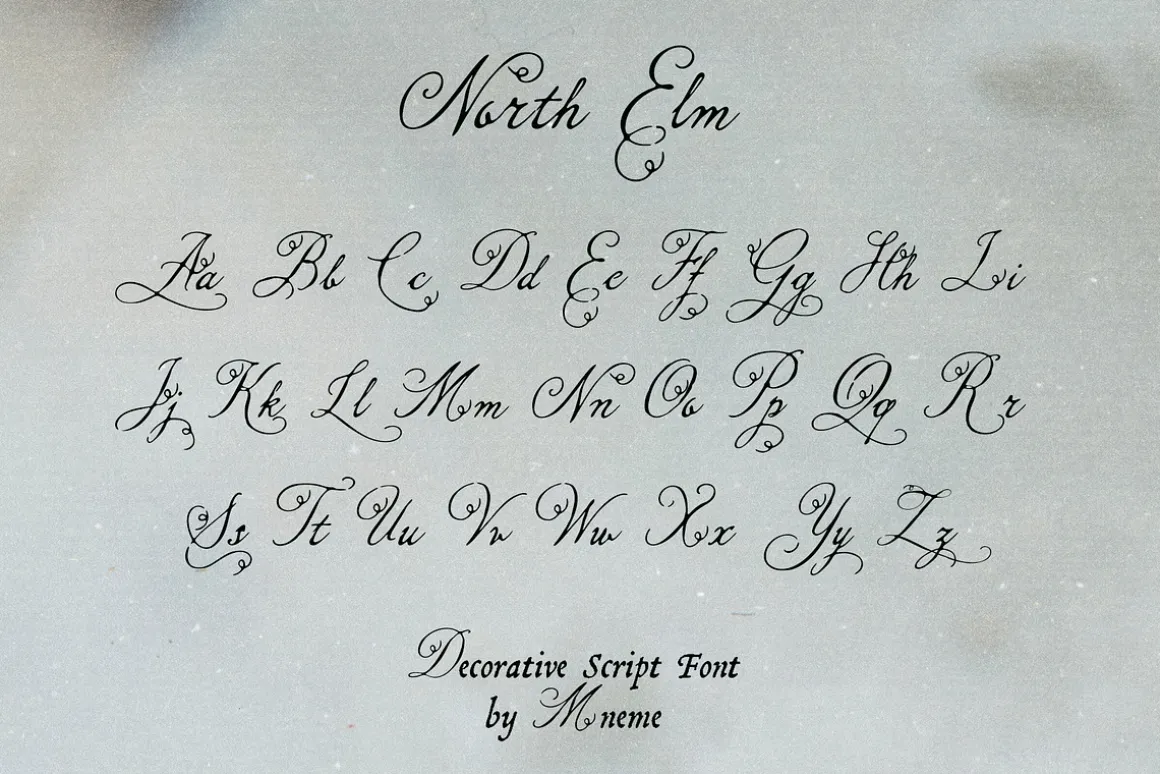 North Elm
Aa Bb Cc Dd Ee Ff Gg Hh Ii
Jj Kk Ll Mm Nn Oo Pp Qq Rr
Ss Tt Uu Vv Ww Xx Yy Zz
Decorative Script Font
by Mneme